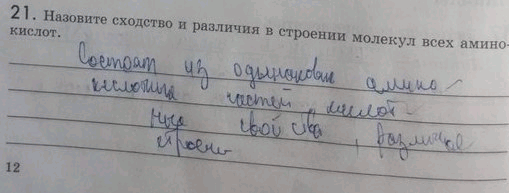 21. Назовите сходство и различия в строении молекул всех амино-
кислот.
Состоят из одинаковых амино
кислотных частей, кислот
ные свойства, различное
строение
12